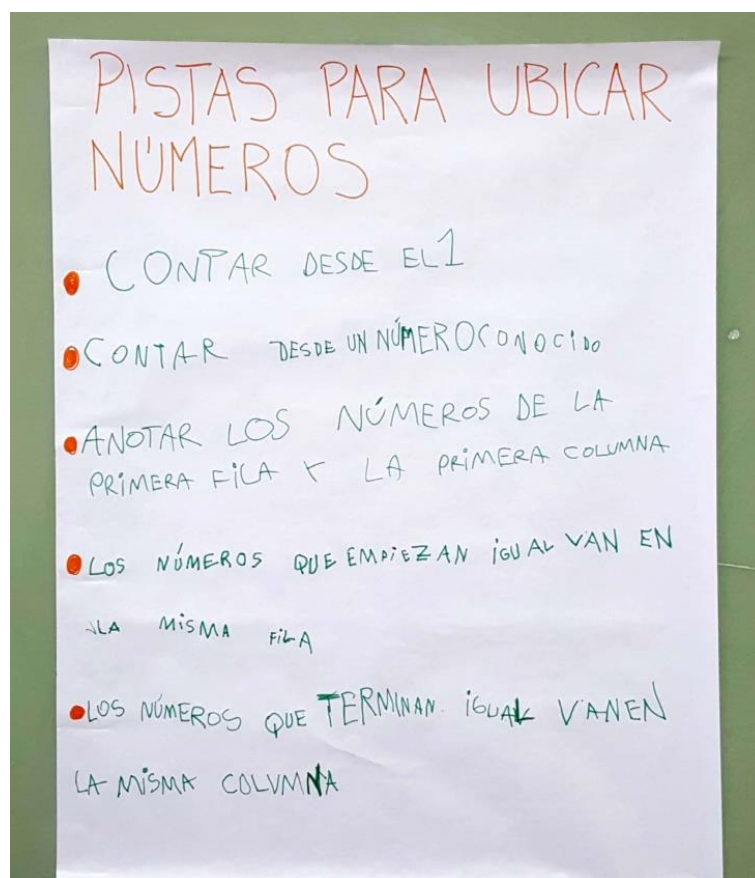 PISTAS PARA UBICAR
NÚMEROS
CONTAR DESDE EL 1
CONTAR DESDE UN NÚMERO CONOCIDO
ANOTAR LOS NÚMEROS DE LA
PRIMERA FILA Y LA PRIMERA COLUMNA
LOS NÚMEROS QUE EMPIEZAN IGUAL VAN EN
LA MISMA FILA
LOS NÚMEROS QUE TERMINAN IGUAL VAN EN
LA MISMA COLUMNA